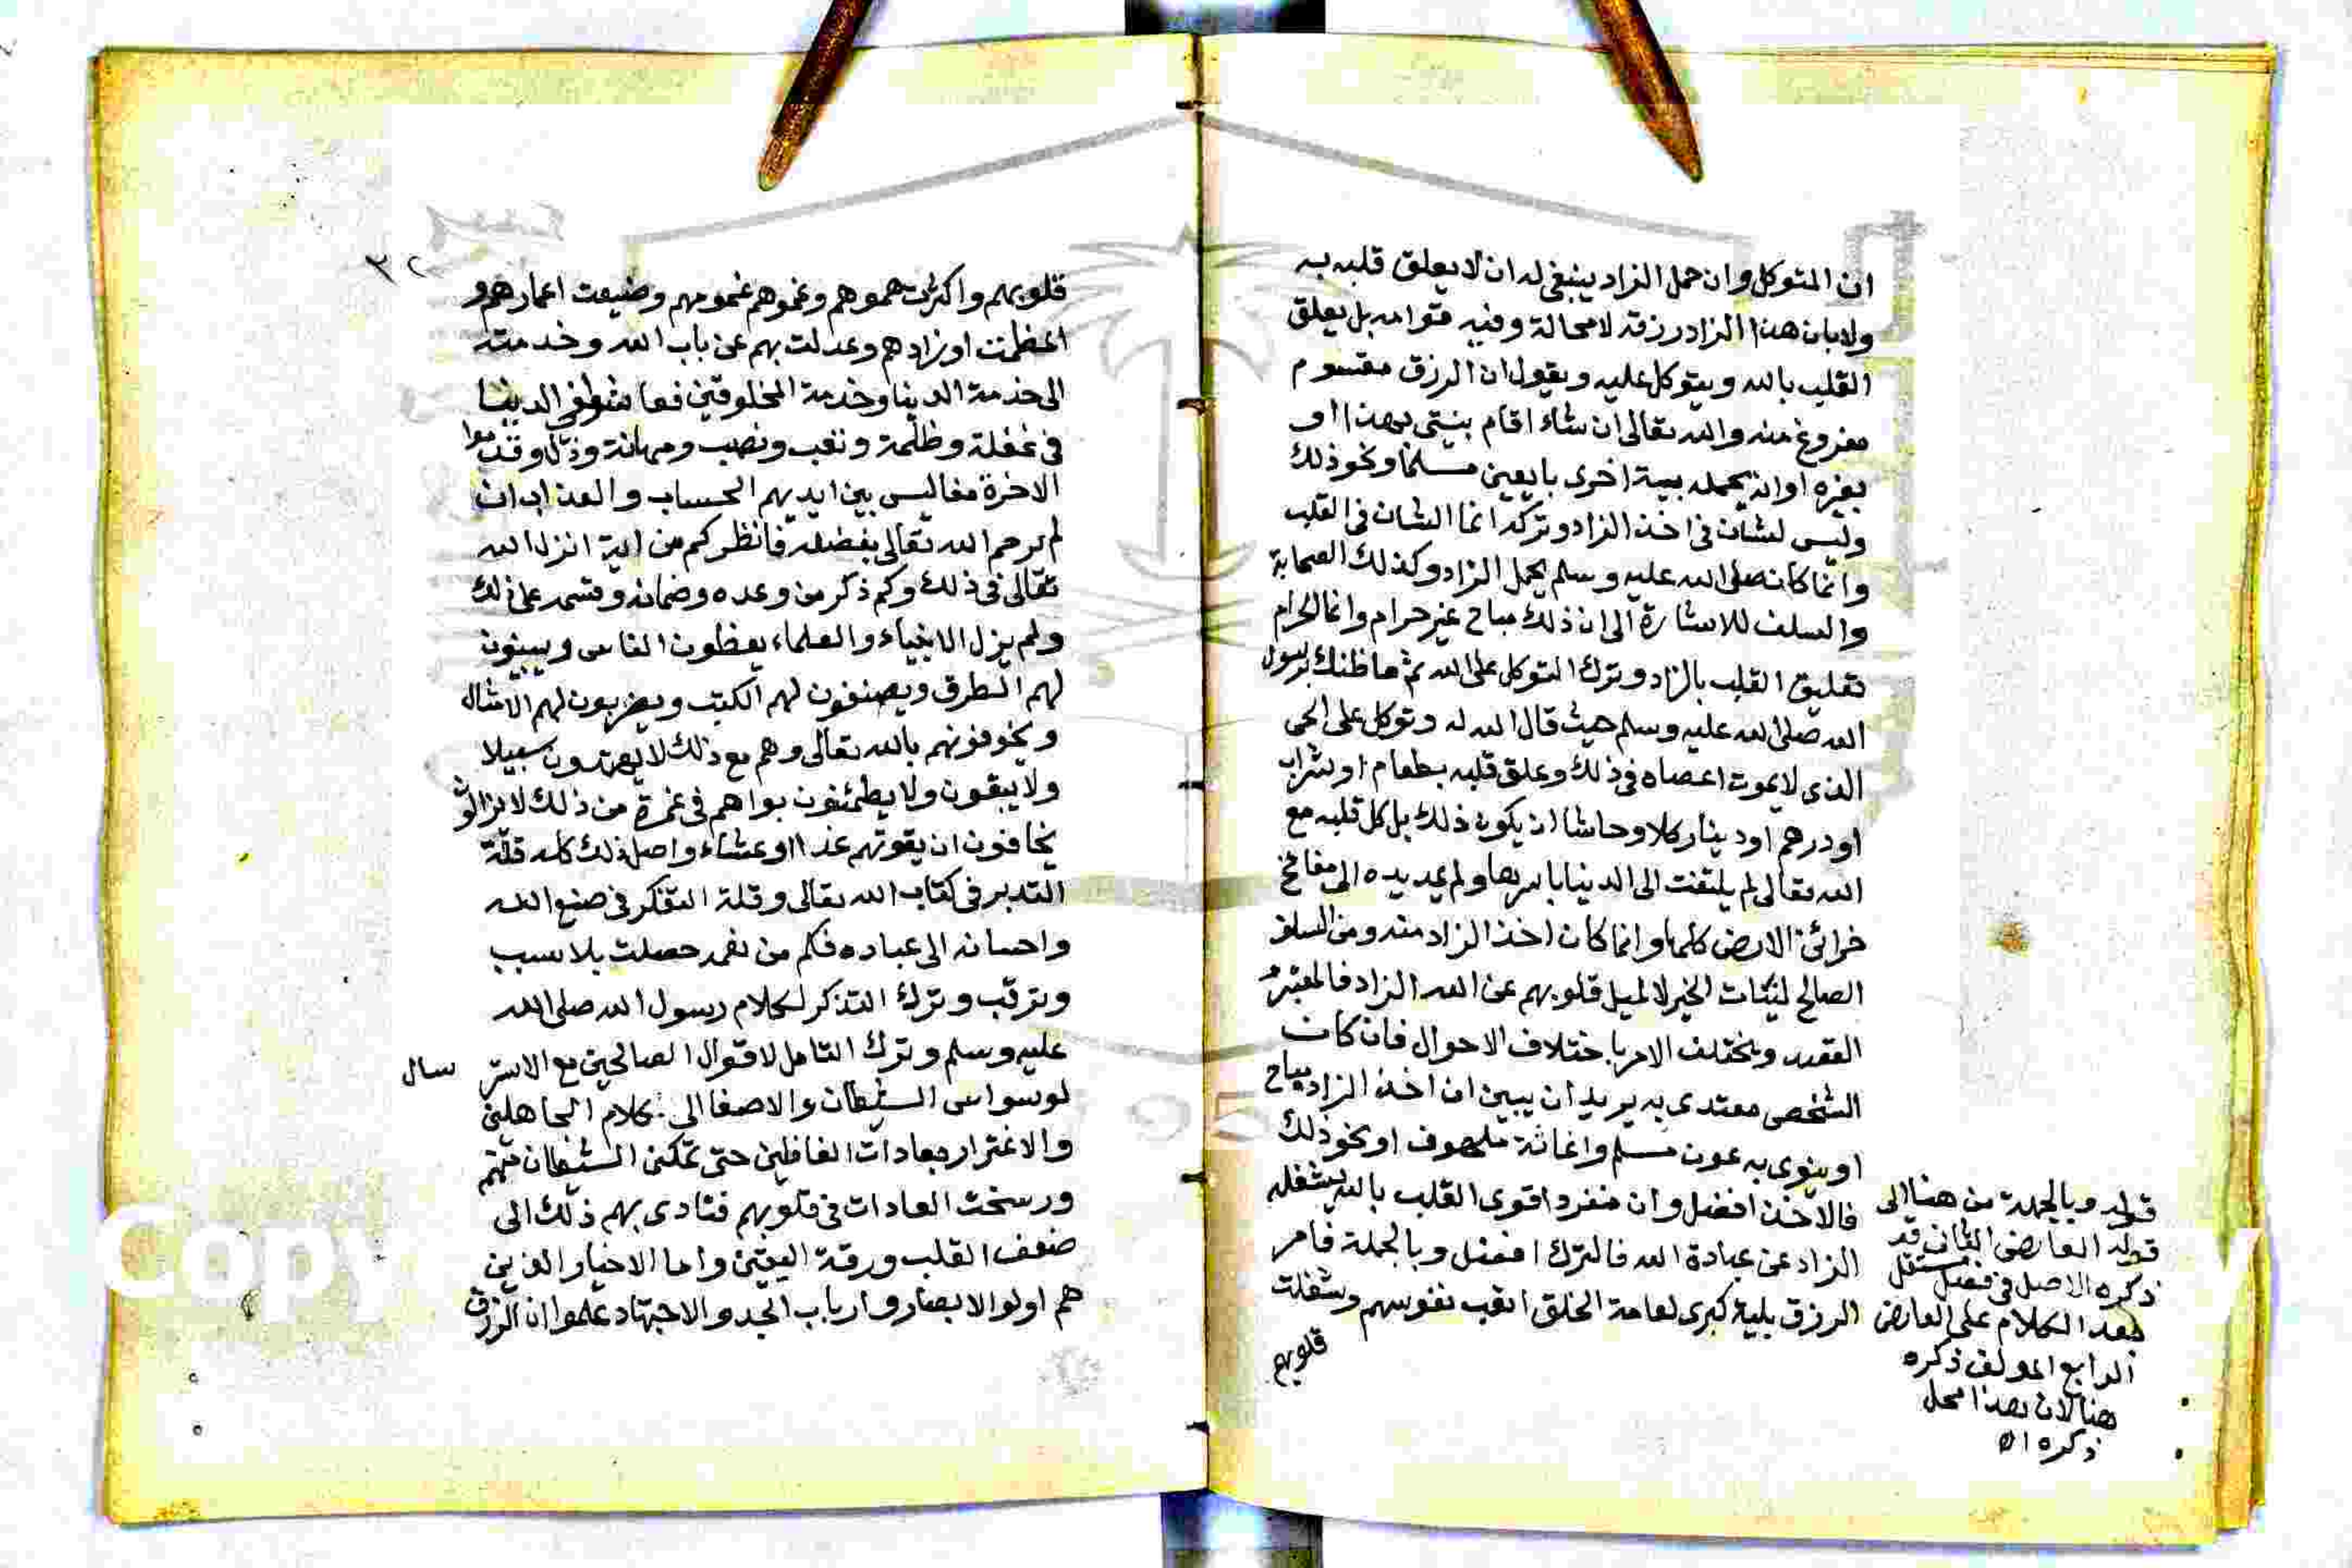 ان المتوكل وان حمل الزاد ينبغي له ان لا يعلق قلبه به
ولا بان هذا الزاد رزقه لا محالة وفيه قوامه بل يعلق
القلب بالله ويتوكل عليه ويقول ان الرزق مقسوم
مفروغ منه والله تعالى ان شاء اقام بنيتي بهذا او
بغيره او انه يحمله بنية اخرى بان يعين مسلما ونحو ذلك
وليس الشان في اخذ الزاد وتركه انما الشان في القلب
وانما كان صلى الله عليه وسلم يحمل الزاد وكذلك الصحابة
والسلف للاشارة الى ان ذلك مباح غير حرام وانما الحرام
تعليق القلب بالزاد وترك التوكل على الله ثم ما ظنك برسول
الله صلى الله عليه وسلم حيث قال الله له وتوكل على الحي
الذي لا يموت اعصاه في ذلك وعلق قلبه بطعام او شراب
او درهم او دينار كلا وحاشا ان يكون ذلك بل كل قلبه مع
الله تعالى لم يلتفت الى الدنيا باسرها ولم يمد يده الى مفاتح
خزائن الارض كلها وانما كان اخذ الزاد منه ومن السلف
الصالح لنيات الخير لا لميل قلوبهم عن الله الى الزاد فالمعتبر
القصد ويختلف الامر باختلاف الاحوال فان كان
الشخص مقتدى به يريد ان يبين ان اخذ الزاد مباح
او ينوي به عون مسلم واغاثة ملهوف او نحو ذلك
فالاخذ افضل وان منفردا قوي القلب بالله يشغله
الزاد عن عبادة الله فالترك افضل وبالجملة فامر
الرزق بلية كبرى لعامة الخلق اتعب نفوسهم وشغلت
قلوبهم
قوله وبالجملة من هنا الى
قوله العارض الثاني قد
ذكره الاصل في فصل مستقل
بعد الكلام على العارض
الرابع المولف ذكره
هنا لان هذا محل
ذكره اه
٣٢
قلوبهم واكثرت همومهم وغموهم غمومهم وضيعت اعمارهم و
اعظمت اوزارهم وعدلت بهم عن باب الله وخدمته
الى خدمة الدنيا وخدمة المخلوقين فعاشوا في الدنيا
في غفلة وظلمة وتعب ونصب ومهانة وذل وقدموا
الاخرة مفاليس بين ايديهم الحساب والعذاب ان
لم يرحم الله تعالى بفضله فانظر كم من اية انزل الله
تعالى في ذلك وكم ذكر من وعده وضمانه وقسمه على ذلك
ولم يزل الانبياء والعلماء يعظون الناس ويبينون
لهم الطرق ويصنفون لهم الكتب ويضربون لهم الامثال
ويخوفونهم بالله تعالى وهم مع ذلك لا يهتدون سبيلا
ولا يتقون ولا يطمئنون بل هم في غمرة من ذلك لا يزالون
يخافون ان يفوتهم غدا او عشاء واصل ذلك كله قلة
التدبر في كتاب الله تعالى وقلة التفكر في صنع الله
واحسانه الى عباده فكم من نعمه حصلت بلا سبب
وترقب وترك التذكر لكلام رسول الله صلى الله
عليه وسلم وترك التامل لاقوال الصالحين مع الاستر سال
لوسواس الشيطان والاصغا الى كلام الجاهلين
والاغترار بعادات الغافلين حتى تمكن الشيطان منهم
ورسخت العادات في قلوبهم فتادى بهم ذلك الى
ضعف القلب ورقة اليقين واما الاخيار الذين
هم اولوا الابصار وارباب الجد والاجتهاد علموا ان الرزق